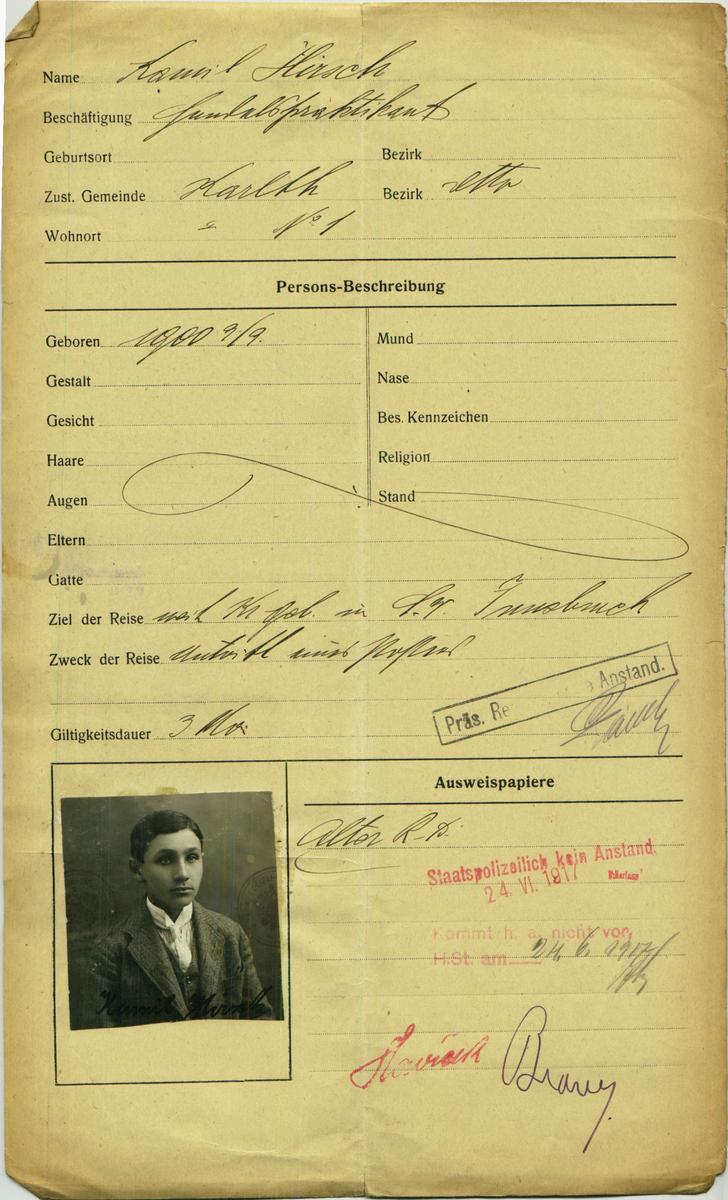 Name Kamil Hirsch
Beschäftigung Handelspraktikant
Geburtsort Bezirk
Zust. Gemeinde Karlth Bezirk dtto
Wohnort " No 1
Persons-Beschreibung
Geboren 1900 9/9. Mund
Gestalt Nase
Gesicht Bes. Kennzeichen
Haare Religion
Augen Stand
Eltern
Gatte
Ziel der Reise in Innsbruck
Zweck der Reise Antritt eines Postens
Präs. Anstand.
Giltigkeitsdauer 3 Mo.
Ausweispapiere
Alter R. P.
Staatspolizeilich kein Anstand.
24. VI. 1917
Kommt h. a. nicht vor,
H.St. am 24. 6. 1917
Kamil Hirsch